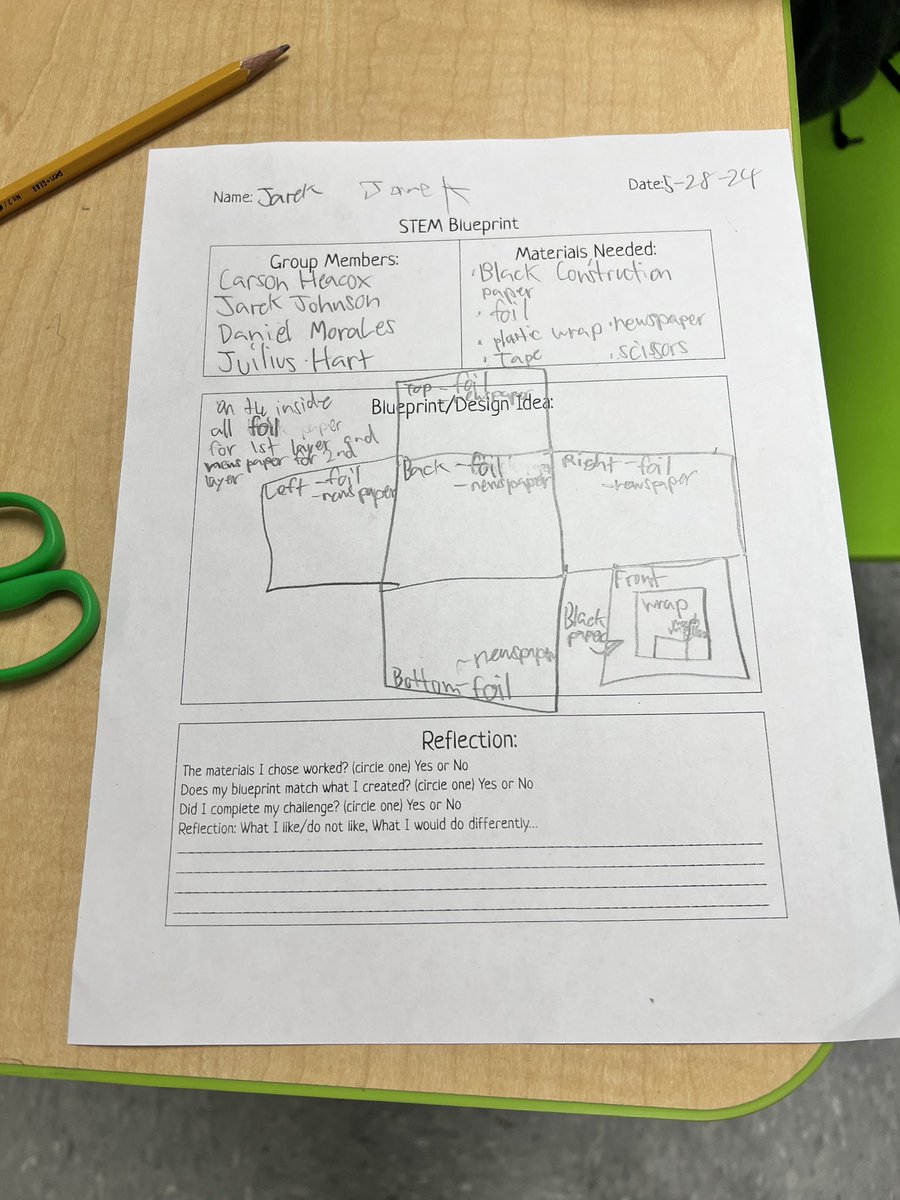 pen+GEAR No 2 / HB
Name: Jarek Jarek
Date: 5-28-24
STEM Blueprint
Group Members:
Carson Heacox
Jarek Johnson
Daniel Morales
Juilius Hart
Materials Needed:
• Black Construction
paper
• foil
• plastic wrap • newspaper
• Tape • scissors
Blueprint/Design Idea:
on the inside
all foil paper
for 1st layer and
newspaper for 2nd
layer
Top - foil
newspaper
Left - foil
- newspaper
Back - foil
- newspaper
Right - foil
- newspaper
Front
wrap
Black
paper
- newspaper
Bottom - foil
Reflection:
The materials I chose worked? (circle one) Yes or No
Does my blueprint match what I created? (circle one) Yes or No
Did I complete my challenge? (circle one) Yes or No
Reflection: What I like/do not like, What I would do differently...